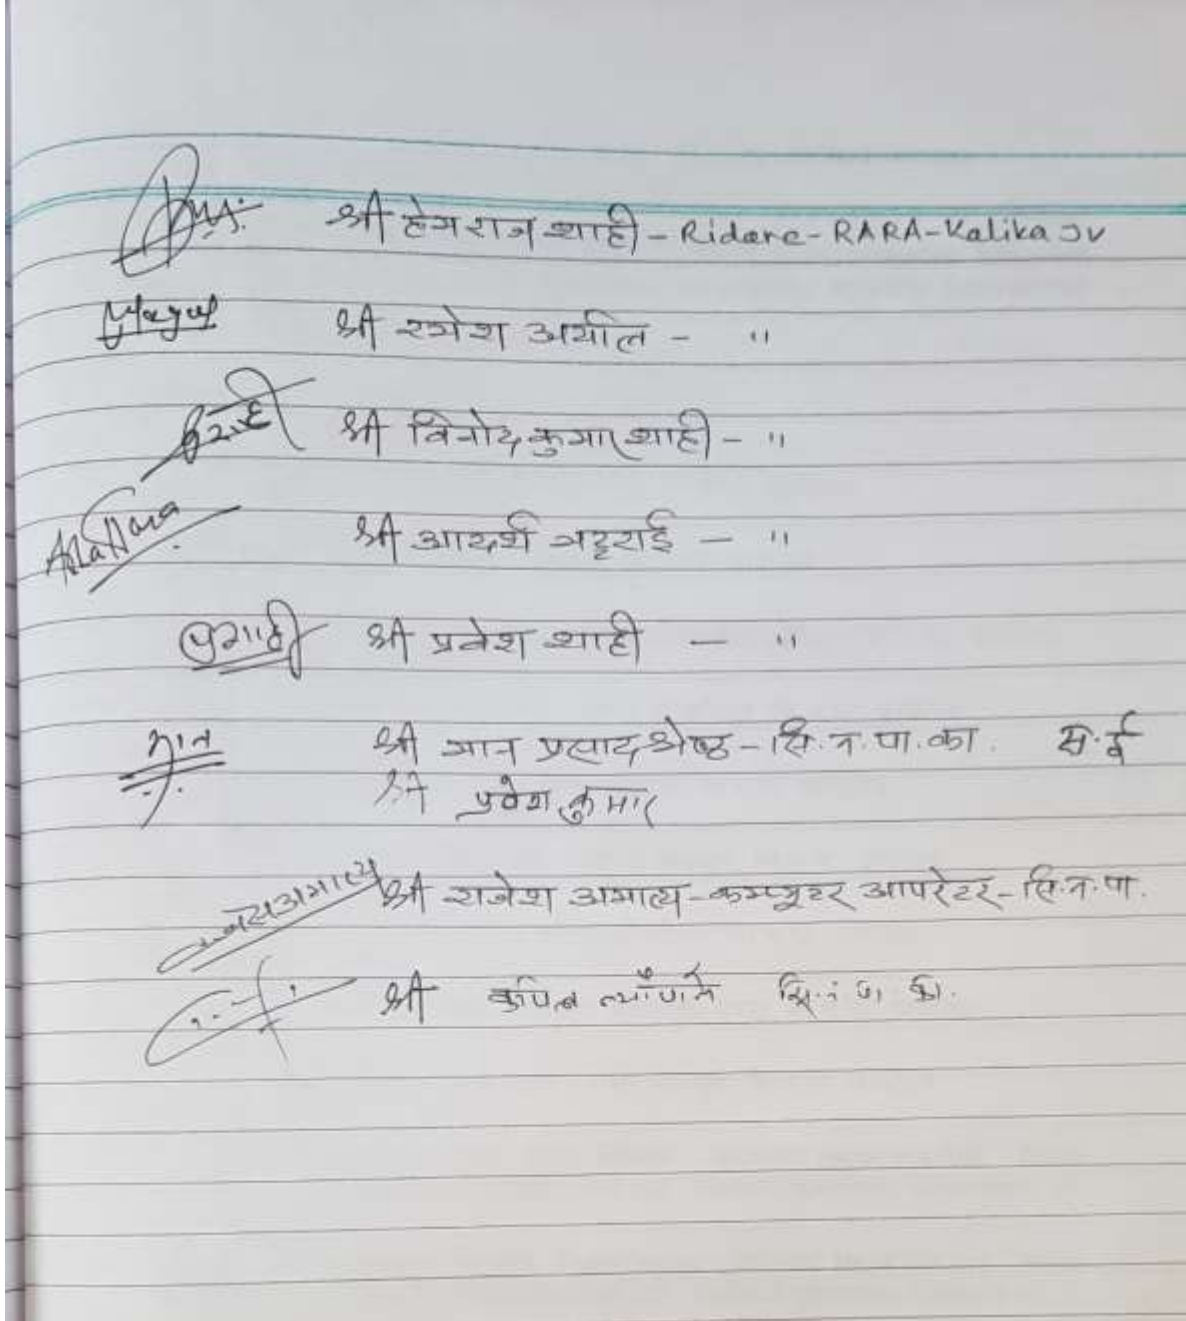 श्री हेमराज शाही - Ridare - RARA - Kalika JV
श्री रमेश अर्याल - "
श्री विनोद कुमार शाही - "
श्री आदर्श भट्टराई - "
श्री प्रवेश शाही - "
मान श्री मान प्रसाद श्रेष्ठ - सि.न.पा.का. स.ई
श्री प्रवेश कुमार
श्री राजेश अमात्य - कम्प्यूटर आपरेटर - सि.न.पा.
श्री कपिल